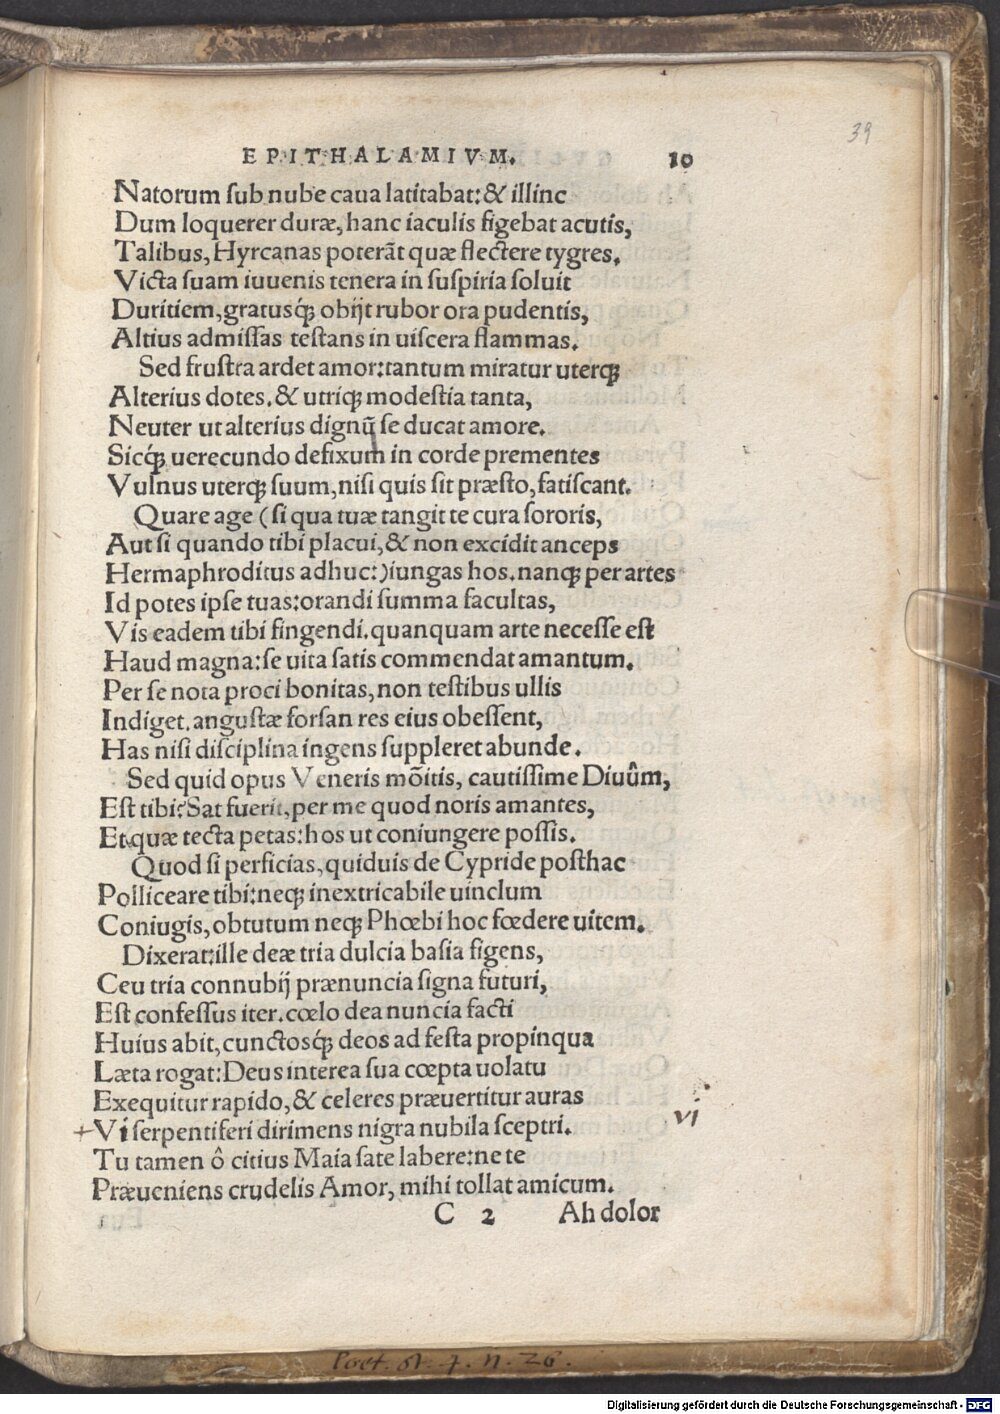 39
EPITHALAMIVM. 10
Natorum ſub nube caua latitabat: & illinc
Dum loquerer duræ, hanc iaculis figebat acutis,
Talibus, Hyrcanas poterãt quæ flectere tygres.
Victa ſuam iuuenis tenera in ſuſpiria ſoluit
Duritiem, gratusq́; obijt rubor ora pudentis,
Altius admiſſas teſtans in uiſcera flammas.
Sed fruſtra ardet amor: tantum miratur uterq;
Alterius dotes. & utriq; modeſtia tanta,
Neuter ut alterius dignũ ſe ducat amore.
Sicq́; uerecundo defixum in corde prementes
Vulnus uterq; ſuum, niſi quis ſit præſto, fatiſcant.
Quare age (ſi qua tuæ tangit te cura ſororis,
Aut ſi quando tibi placui, & non excidit anceps
Hermaphroditus adhuc:) iungas hos. nanq; per artes
Id potes ipſe tuas: orandi ſumma facultas,
Vis eadem tibi fingendi. quanquam arte neceſſe eſt
Haud magna: ſe uita ſatis commendat amantum.
Per ſe nota proci bonitas, non teſtibus ullis
Indiget. anguſtæ forſan res eius obeſſent,
Has niſi diſciplina ingens ſuppleret abunde.
Sed quid opus Veneris mõitis, cautiſſime Diuûm,
Eſt tibi? Sat fuerit, per me quod noris amantes,
Et quæ tecta petas: hos ut coniungere poſſis.
Quod ſi perficias, quiduis de Cypride poſthac
Polliceare tibi: neq; inextricabile uinclum
Coniugis, obtutum neq; Phœbi hoc fœdere uitem.
Dixerat: ille deæ tria dulcia baſia figens,
Ceu tria connubij prænuncia ſigna futuri,
Eſt confeſſus iter. cœlo dea nuncia facti
Huius abit, cunctosq́; deos ad feſta propinqua
Læta rogat: Deus interea ſua cœpta uolatu
Exequitur rapido, & celeres præuertitur auras
+Vi ſerpentiferi dirimens nigra nubila ſceptri. VI
Tu tamen ô citius Maia ſate labere: ne te
Præueniens crudelis Amor, mihi tollat amicum.
C 2 Ah dolor
Poet. st. 7. n. 26.
Digitalisierung gefördert durch die Deutsche Forschungsgemeinschaft - DFG